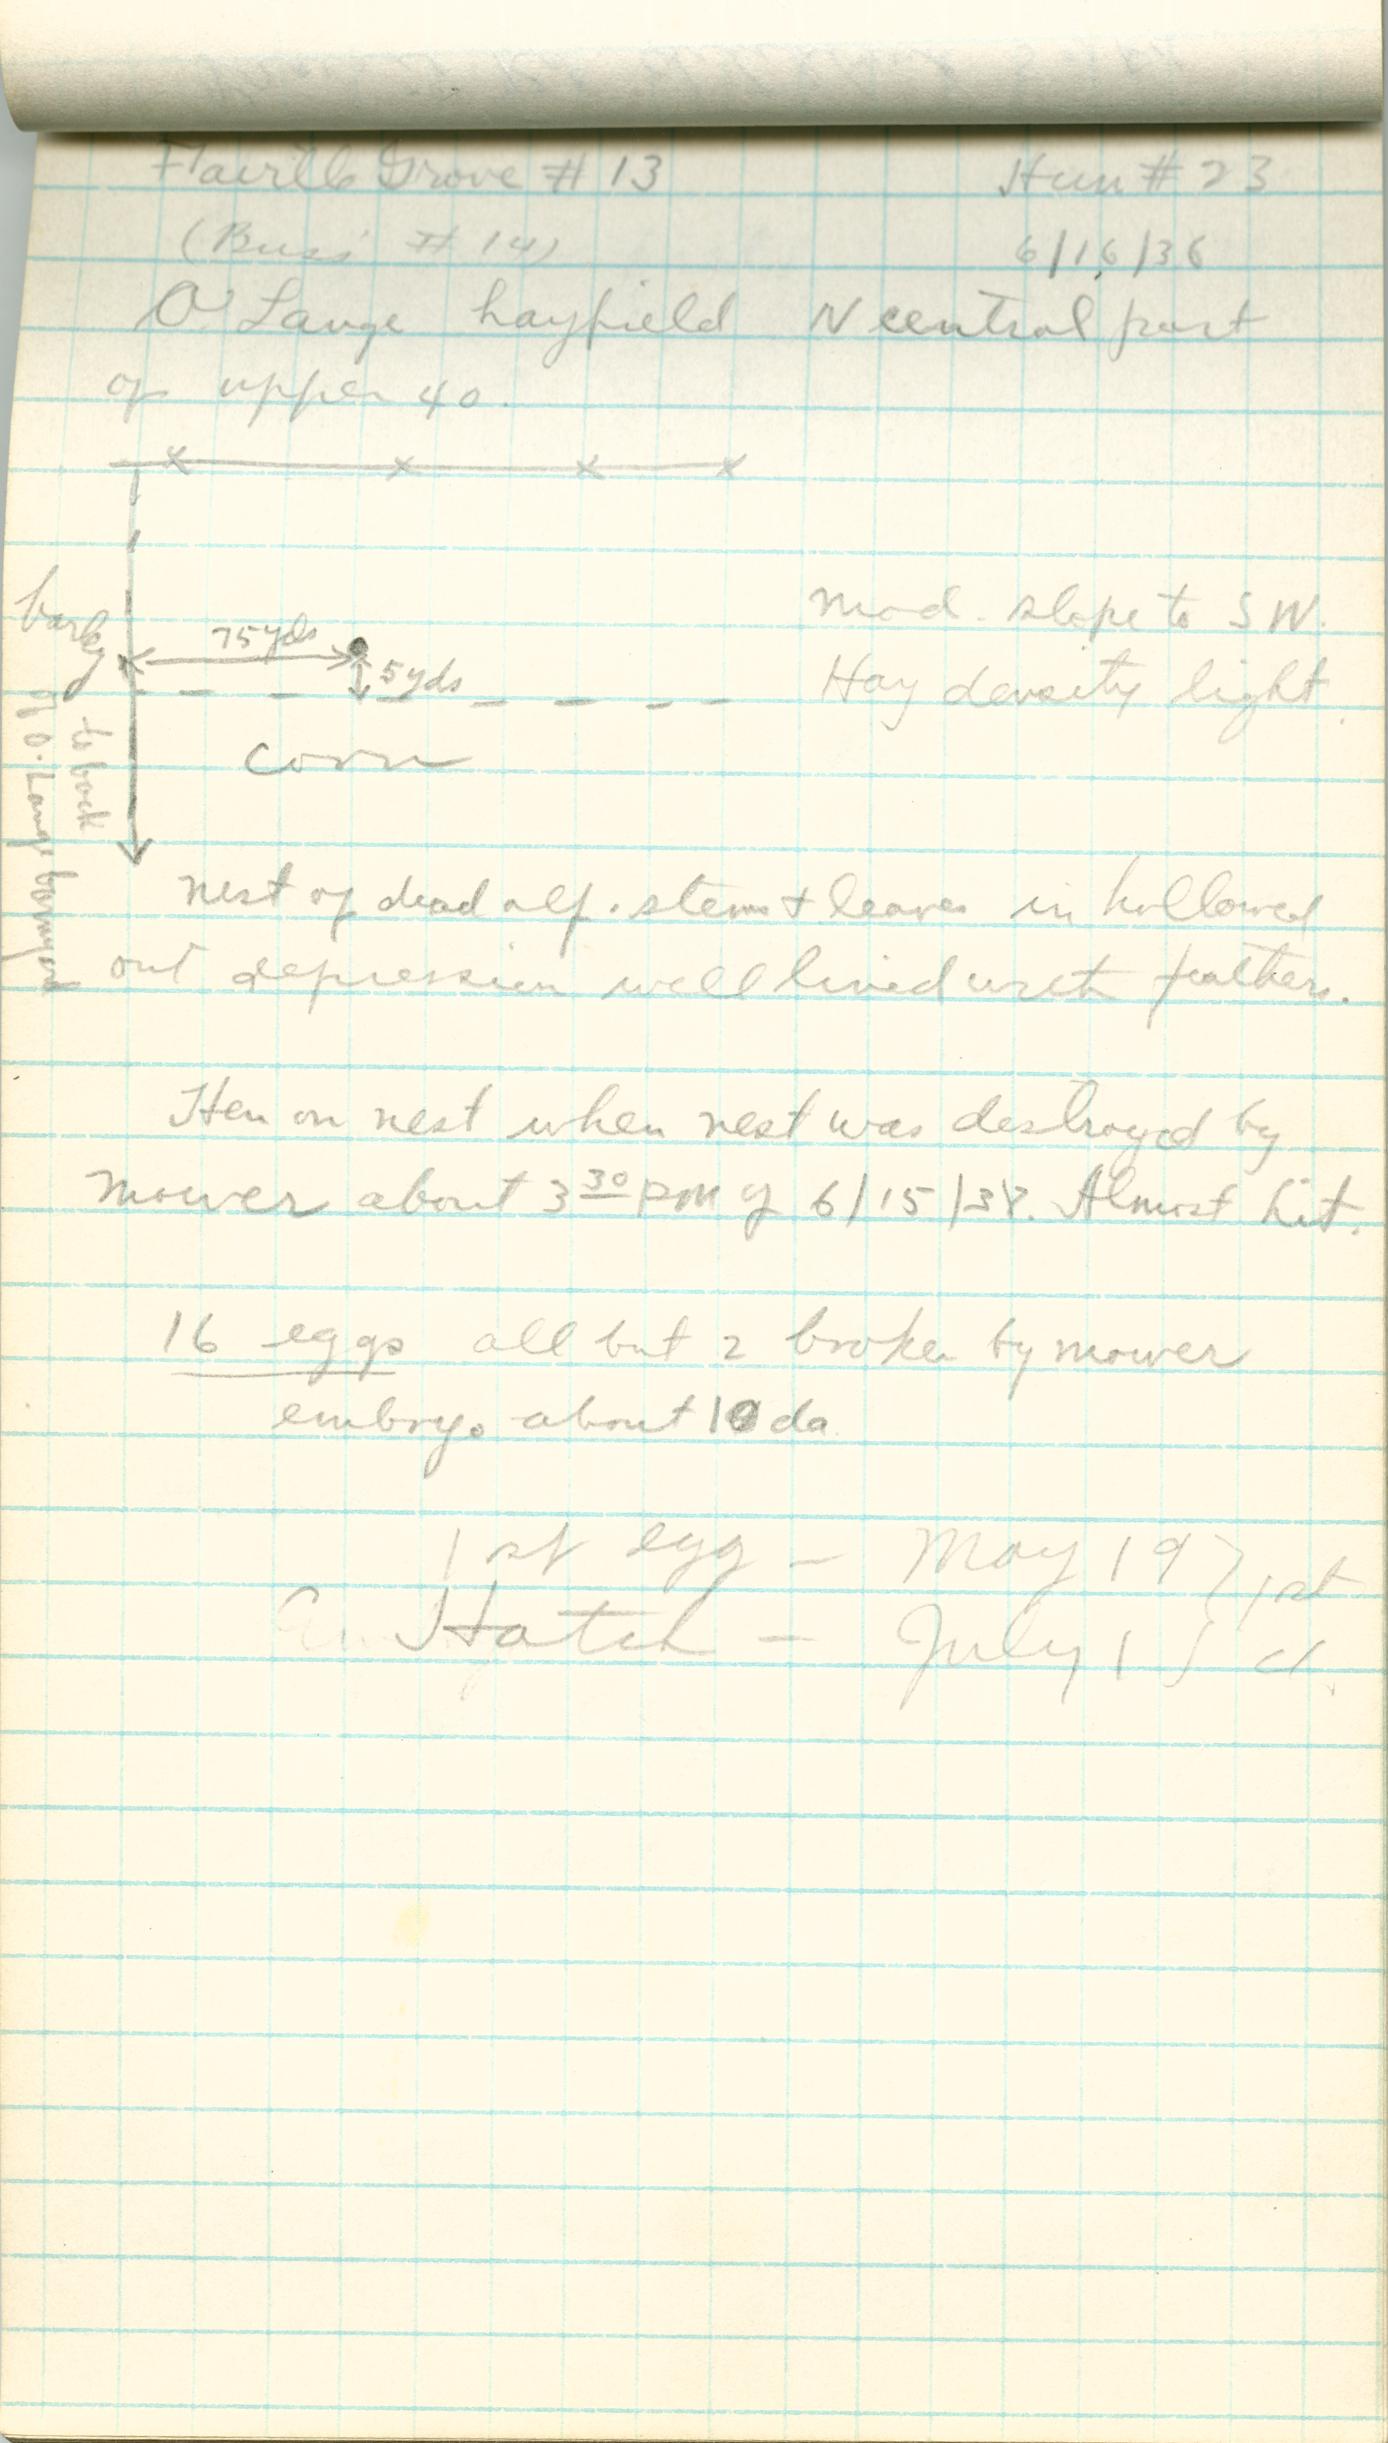 Faville Grove # 13 Hun # 23
(Buss' # 14) 6/16/38
O Lange hayfield N central part
of upper 40.
barley
75 yds
5 yds
mod. slope to SW.
Hay density light.
corn
to back
of O. Lange barnyard
nest of dead alf. stems & leaves in hollowed
out depression well lined with feathers.
Hen on nest when nest was destroyed by
mower about 3 30 PM of 6/15/38. Almost hit.
16 eggs all but 2 broken by mower
embryo about 10 da
1st egg - May 19 } 1st
Hatch - July 1 } cl.